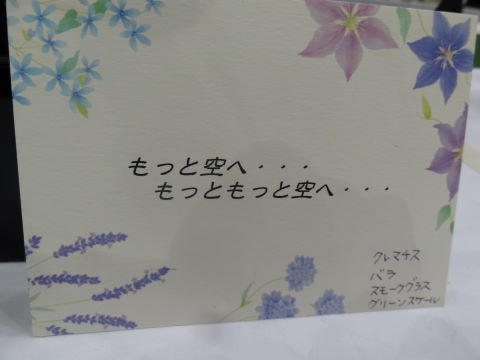 もっと空へ・・・
もっともっと空へ・・・
クレマチス
バラ
スモークグラス
グリーンスケール